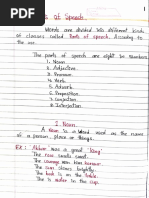 1
of Speech
Words are divided into different kinds
of classes called Parts of speech. According to
the use.
The parts of speech are eight in numbers
1. Noun
2. Adjective
3. Pronoun
4. Verb
5. Adverb
6. Preposition
7. Conjuction
8. Interjection
1. Noun
A Noun is a Word used as the name
of a person place or things.
EX: Akbar was a great king
The rose smells sweet.
The sun shines brightly.
The book is on the table.
The is water in the cup.